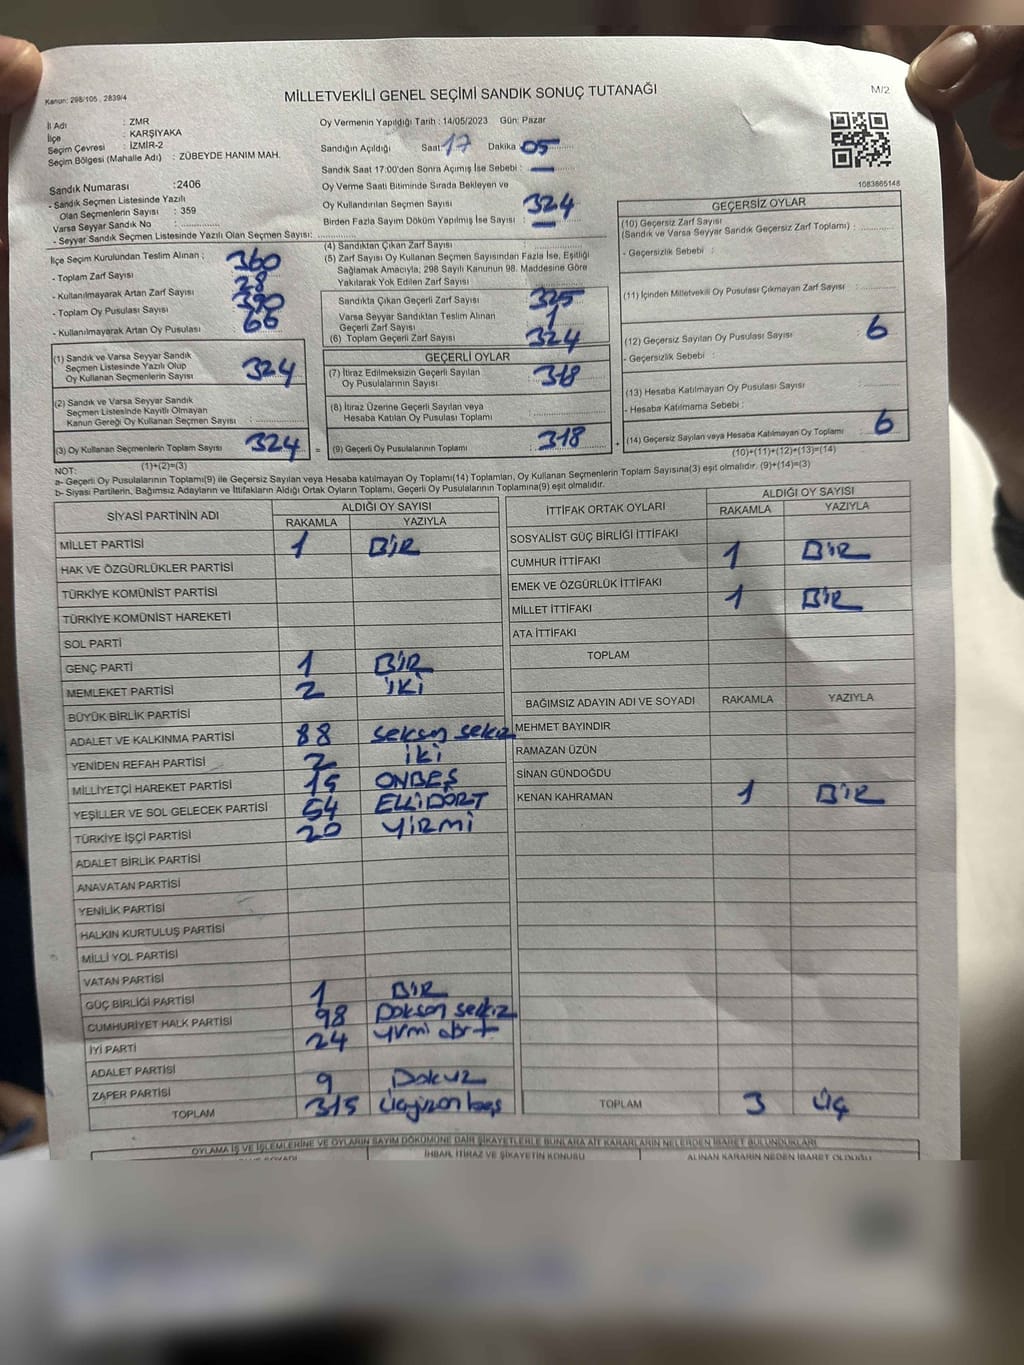 Kanun: 298/105 , 2839/4
MİLLETVEKİLİ GENEL SEÇİMİ SANDIK SONUÇ TUTANAĞI
M/2
İl Adı : ZMR
İlçe : KARŞIYAKA
Seçim Çevresi : İZMİR-2
Seçim Bölgesi (Mahalle Adı) : ZÜBEYDE HANIM MAH.
Sandık Numarası :2406
- Sandık Seçmen Listesinde Yazılı
Olan Seçmenlerin Sayısı : 359
Varsa Seyyar Sandık No : ..............
- Seyyar Sandık Seçmen Listesinde Yazılı Olan Seçmen Sayısı: ..............
İlçe Seçim Kurulundan Teslim Alınan ;
- Toplam Zarf Sayısı 360
- Kullanılmayarak Artan Zarf Sayısı 28
- Toplam Oy Pusulası Sayısı 390
- Kullanılmayarak Artan Oy Pusulası : 66
(1) Sandık ve Varsa Seyyar Sandık
Seçmen Listesinde Yazılı Olup
Oy Kullanan Seçmenlerin Sayısı : 324
(2) Sandık ve Varsa Seyyar Sandık
Seçmen Listesinde Kayıtlı Olmayan
Kanun Gereği Oy Kullanan Seçmen Sayısı :
(3) Oy Kullanan Seçmenlerin Toplam Sayısı 324
(1)+(2)=(3)
Oy Vermenin Yapıldığı Tarih : 14/05/2023 Gün: Pazar
Sandığın Açıldığı Saat 17 Dakika 05
Sandık Saat 17:00'den Sonra Açımış İse Sebebi : —
Oy Verme Saati Bitiminde Sırada Bekleyen ve
Oy Kullandırılan Seçmen Sayısı 324
Birden Fazla Sayım Döküm Yapılmış İse Sayısı : —
(4) Sandıktan Çıkan Zarf Sayısı
(5) Zarf Sayısı Oy Kullanan Seçmen Sayısından Fazla İse, Eşitliği
Sağlamak Amacıyla, 298 Sayılı Kanunun 98. Maddesine Göre
Yakılarak Yok Edilen Zarf Sayısı
Sandıkta Çıkan Geçerli Zarf Sayısı 325
Varsa Seyyar Sandıktan Teslim Alınan
Geçerli Zarf Sayısı 1
(6) Toplam Geçerli Zarf Sayısı : 324
GEÇERLİ OYLAR
(7) İtiraz Edilmeksizin Geçerli Sayılan
Oy Pusulalarının Sayısı : 318
(8) İtiraz Üzerine Geçerli Sayılan veya
Hesaba Katılan Oy Pusulası Toplamı
= (9) Geçerli Oy Pusulalarının Toplamı : 318
1083865148
GEÇERSİZ OYLAR
(10) Geçersiz Zarf Sayısı
(Sandık ve Varsa Seyyar Sandık Geçersiz Zarf Toplamı) :
- Geçersizlik Sebebi :
(11) İçinden Milletvekili Oy Pusulası Çıkmayan Zarf Sayısı :
(12) Geçersiz Sayılan Oy Pusulası Sayısı : 6
- Geçersizlik Sebebi :
(13) Hesaba Katılmayan Oy Pusulası Sayısı
- Hesaba Katılmama Sebebi :
+ (14) Geçersiz Sayılan veya Hesaba Katılmayan Oy Toplamı 6
(10)+(11)+(12)+(13)=(14)
NOT:
a- Geçerli Oy Pusulalarının Toplamı(9) ile Geçersiz Sayılan veya Hesaba katılmayan Oy Toplamı(14) Toplamları, Oy Kullanan Seçmenlerin Toplam Sayısına(3) eşit olmalıdır. (9)+(14)=(3)
b- Siyasi Partilerin, Bağımsız Adayların ve İttifakların Aldığı Ortak Oyların Toplamı, Geçerli Oy Pusulalarının Toplamına(9) eşit olmalıdır.
SİYASİ PARTİNİN ADI ALDIĞI OY SAYISI
RAKAMLA YAZIYLA
MİLLET PARTİSİ 1 BİR
HAK VE ÖZGÜRLÜKLER PARTİSİ
TÜRKİYE KOMÜNİST PARTİSİ
TÜRKİYE KOMÜNİST HAREKETİ
SOL PARTİ
GENÇ PARTİ 1 BİR
MEMLEKET PARTİSİ 2 iKi
BÜYÜK BİRLİK PARTİSİ
ADALET VE KALKINMA PARTİSİ 88 seksen sekiz
YENİDEN REFAH PARTİSİ 2 iki
MİLLİYETÇİ HAREKET PARTİSİ 15 ONBEŞ
YEŞİLLER VE SOL GELECEK PARTİSİ 54 ELLİDÖRT
TÜRKİYE İŞÇİ PARTİSİ 20 YİRMİ
ADALET BİRLİK PARTİSİ
ANAVATAN PARTİSİ
YENİLİK PARTİSİ
HALKIN KURTULUŞ PARTİSİ
MİLLİ YOL PARTİSİ
VATAN PARTİSİ
GÜÇ BİRLİĞİ PARTİSİ 1 BİR
CUMHURİYET HALK PARTİSİ 98 Doksan sekiz
İYİ PARTİ 24 yirmi dört
ADALET PARTİSİ
ZAFER PARTİSİ 9 Dokuz
TOPLAM 315 üçyüzonbeş
İTTİFAK ORTAK OYLARI ALDIĞI OY SAYISI
RAKAMLA YAZIYLA
SOSYALİST GÜÇ BİRLİĞİ İTTİFAKI
CUMHUR İTTİFAKI 1 BİR
EMEK VE ÖZGÜRLÜK İTTİFAKI
MİLLET İTTİFAKI 1 BİR
ATA İTTİFAKI
TOPLAM
BAĞIMSIZ ADAYIN ADI VE SOYADI RAKAMLA YAZIYLA
MEHMET BAYINDIR
RAMAZAN ÜZÜN
SİNAN GÜNDOĞDU
KENAN KAHRAMAN 1 BİR
TOPLAM 3 üç
OYLAMA İŞ VE İŞLEMLERİNE VE OYLARIN SAYIM DÖKÜMÜNE DAİR ŞİKAYETLERLE BUNLARA AİT KARARLARIN NELERDEN İBARET BULUNDUKLARI
İHBAR, İTİRAZ VE ŞİKAYETİN KONUSU
ALINAN KARARIN NEDEN İBARET OLDUĞU